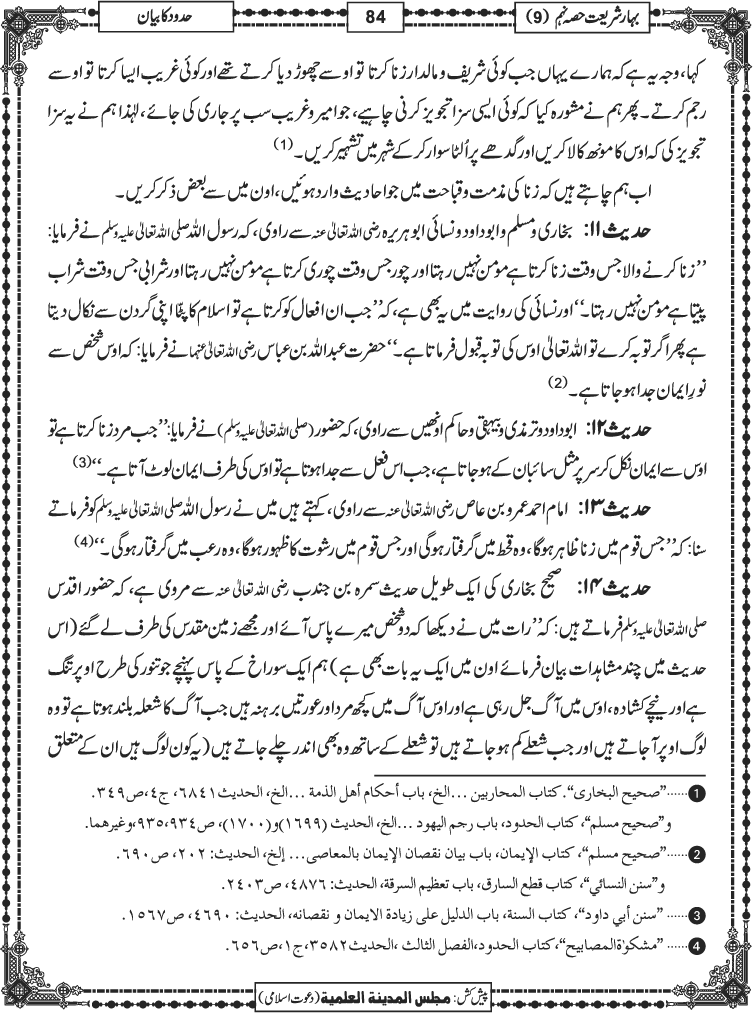 بہار شریعت حصہ نہم (9)
84
حدود کا بیان
کہا، وجہ یہ ہے کہ ہمارے یہاں جب کوئی شریف و مالدار زنا کرتا تو اوسے چھوڑ دیا کرتے تھے اور کوئی غریب ایسا کرتا تو اوسے
رجم کرتے۔ پھر ہم نے مشورہ کیا کہ کوئی ایسی سزا تجویز کرنی چاہیے، جو امیر و غریب سب پر جاری کی جائے، لہٰذا ہم نے یہ سزا
تجویز کی کہ اوس کا مونھ کالا کریں اور گدھے پر اُلٹا سوار کر کے شہر میں تشہیر کریں۔ (1)
اب ہم چاہتے ہیں کہ زنا کی مذمت و قباحت میں جو احادیث وارد ہوئیں، اون میں سے بعض ذکر کریں۔
حدیث ۱۱: بخاری و مسلم و ابو داود و نسائی ابوہریرہ رضی اللہ تعالیٰ عنہ سے راوی، کہ رسول اللہ صلی اللہ تعالیٰ علیہ وسلم نے فرمایا:
’’زنا کرنے والا جس وقت زنا کرتا ہے مومن نہیں رہتا اور چور جس وقت چوری کرتا ہے مومن نہیں رہتا اور شرابی جس وقت شراب
پیتا ہے مومن نہیں رہتا۔‘‘ اور نسائی کی روایت میں یہ بھی ہے، کہ ’’جب ان افعال کو کرتا ہے تو اسلام کا پٹا اپنی گردن سے نکال دیتا
ہے پھر اگر توبہ کرے تو اللہ تعالیٰ اوس کی توبہ قبول فرماتا ہے۔‘‘ حضرت عبداللہ بن عباس رضی اللہ تعالیٰ عنہما نے فرمایا: کہ اوس شخص سے
نورِ ایمان جدا ہو جاتا ہے۔ (2)
حدیث ۱۲: ابو داود و ترمذی و بیہقی و حاکم اونھیں سے راوی، کہ حضور (صلی اللہ تعالیٰ علیہ وسلم) نے فرمایا: ’’جب مرد زنا کرتا ہے تو
اوس سے ایمان نکل کر سر پر مثل سائبان کے ہو جاتا ہے، جب اس فعل سے جدا ہوتا ہے تو اوس کی طرف ایمان لوٹ آتا ہے۔‘‘ (3)
حدیث ۱۳: امام احمد عمرو بن عاص رضی اللہ تعالیٰ عنہ سے راوی، کہتے ہیں میں نے رسول اللہ صلی اللہ تعالیٰ علیہ وسلم کو فرماتے
سنا: کہ ’’جس قوم میں زنا ظاہر ہوگا، وہ قحط میں گرفتار ہوگی اور جس قوم میں رشوت کا ظہور ہوگا، وہ رعب میں گرفتار ہوگی۔‘‘ (4)
حدیث ۱۴: صحیح بخاری کی ایک طویل حدیث سمرہ بن جندب رضی اللہ تعالیٰ عنہ سے مروی ہے، کہ حضور اقدس
صلی اللہ تعالیٰ علیہ وسلم فرماتے ہیں: کہ ’’رات میں نے دیکھا کہ دو شخص میرے پاس آئے اور مجھے زمین مقدس کی طرف لے گئے (اس
حدیث میں چند مشاہدات بیان فرمائے اون میں ایک یہ بات بھی ہے) ہم ایک سوراخ کے پاس پہنچے جو تنور کی طرح اوپر تنگ
ہے اور نیچے کشادہ، اوس میں آگ جل رہی ہے اور اوس آگ میں کچھ مرد اور عورتیں برہنہ ہیں جب آگ کا شعلہ بلند ہوتا ہے تو وہ
لوگ اوپر آ جاتے ہیں اور جب شعلے کم ہو جاتے ہیں تو شعلے کے ساتھ وہ بھی اندر چلے جاتے ہیں (یہ کون لوگ ہیں ان کے متعلق
1 ......”صحيح البخاری“. كتاب المحاربين ...الخ، باب أحكام أهل الذمة ...الخ، الحديث ٦٨٤١، ج٤، ص٣٤٩.
و”صحيح مسلم“، كتاب الحدود، باب رجم اليهود ...الخ، الحديث (١٦٩٩) و(١٧٠٠)، ص٩٣٤،٩٣٥،وغيرهما.
2 ......”صحيح مسلم“، كتاب الإيمان، باب بيان نقصان الإيمان بالمعاصی... إلخ، الحديث: ٢٠٢، ص٦٩٠.
و”سنن النسائي“، كتاب قطع السارق، باب تعظيم السرقة، الحديث: ٤٨٧٦، ص٢٤٠٣.
3 ...... ”سنن أبي داود“، كتاب السنة، باب الدليل على زيادة الايمان و نقصانه، الحديث: ٤٦٩٠، ص١٥٦٧.
4 ...... ”مشكوٰة المصابيح“، كتاب الحدود، الفصل الثالث ،الحديث ٣٥٨٢، ج١، ص٦٥٦.
پیش کش: مجلس المدینة العلمیة (دعوت اسلامی)